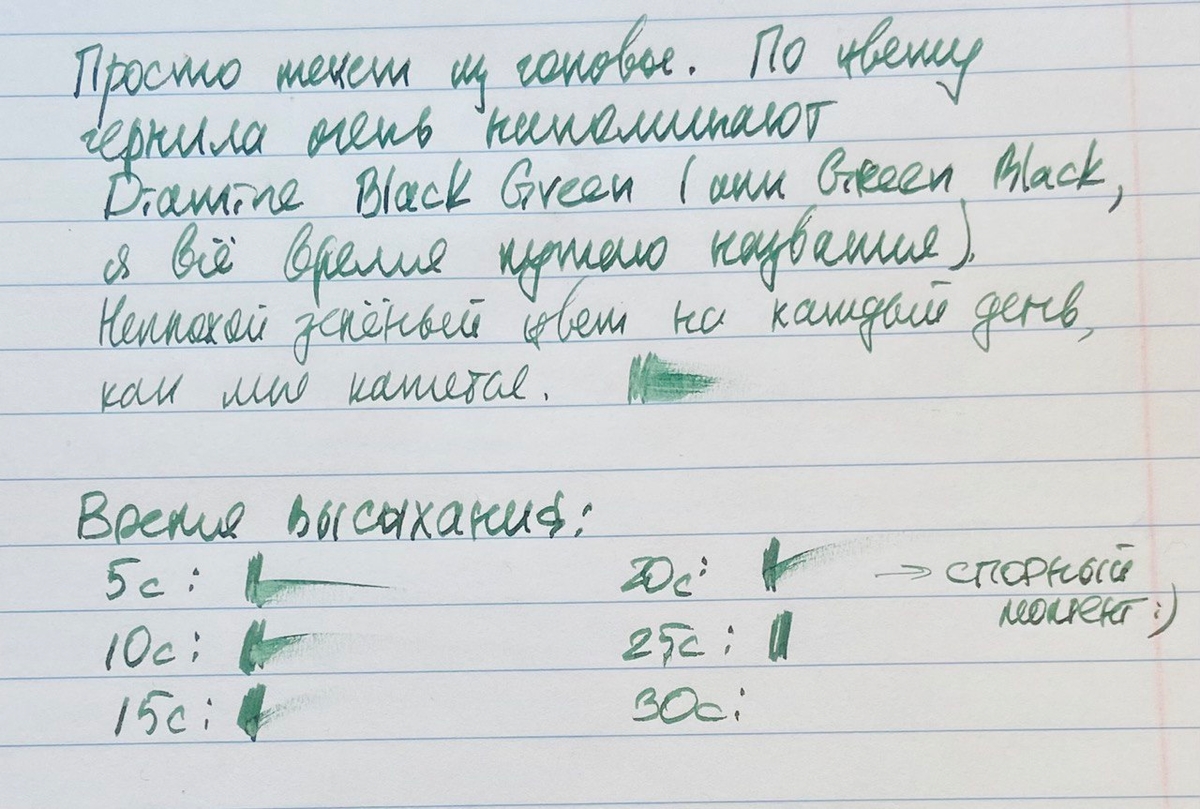 Просто текст из головы. По цвету
чернила очень напоминают
Diamine Black Green (или Green Black,
я всё время путаю названия).
Неплохой зелёный цвет на каждый день,
как мне кажется.
Время высыхания:
5с: 20с: → спорный
момент :)
10с: 25с:
15с: 30с: